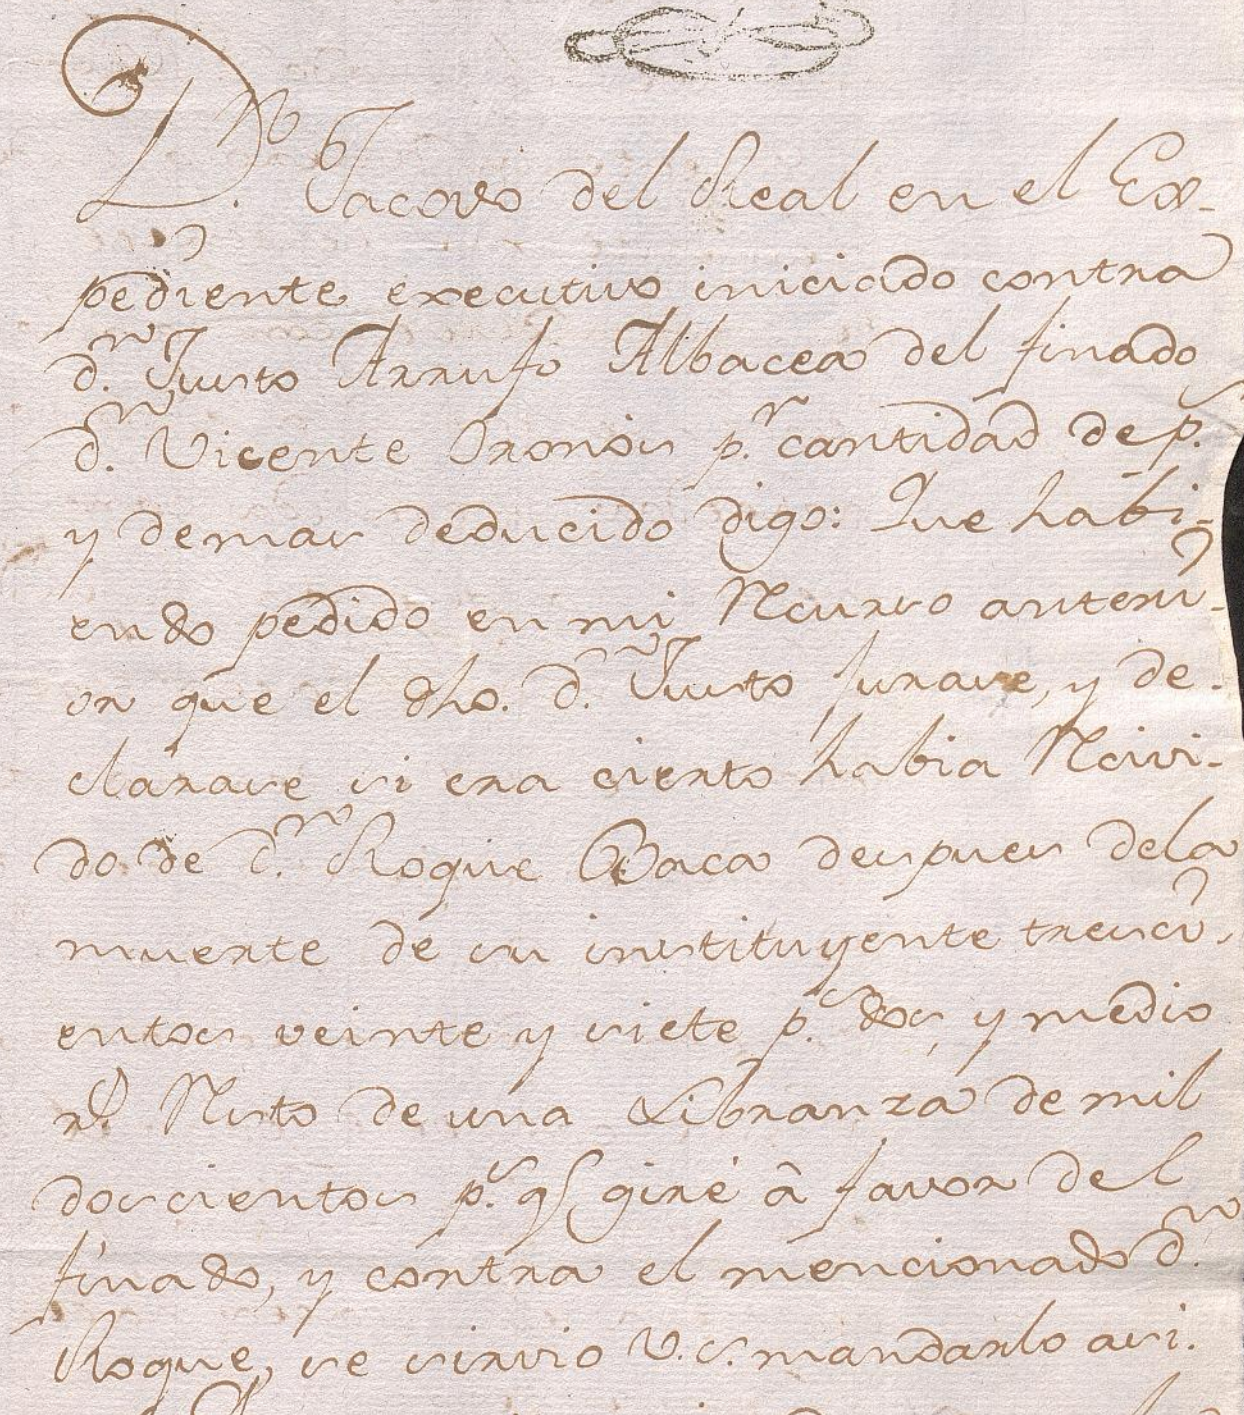 Dn. Jacovo del Real en el Ex-
pediente executivo iniciado contra
dn. Justo Arrufo Albacea del finado
dn. Vicente Oronós pr. cantidad de ps.
y demas deducido digo: Que habi-
endo pedido en mi Rcurso anteri-
or que el dho. dn. Justo jurase, y de-
clarase si era cierto habia Rcivi-
do de dn. Roque Baca despues dela
muerte de su instituyente tresci-
entos veinte y siete ps. dos, y medio
rl. Rsto de una Libranza de mil
doscientos ps. qe giré â favor del
finado, y contra el mencionado dn.
Roque, se sirvio V.S. mandarlo asi.